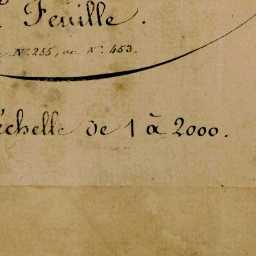 Feuille.
N° 255, au N° 453.
échelle de 1 à 2000.